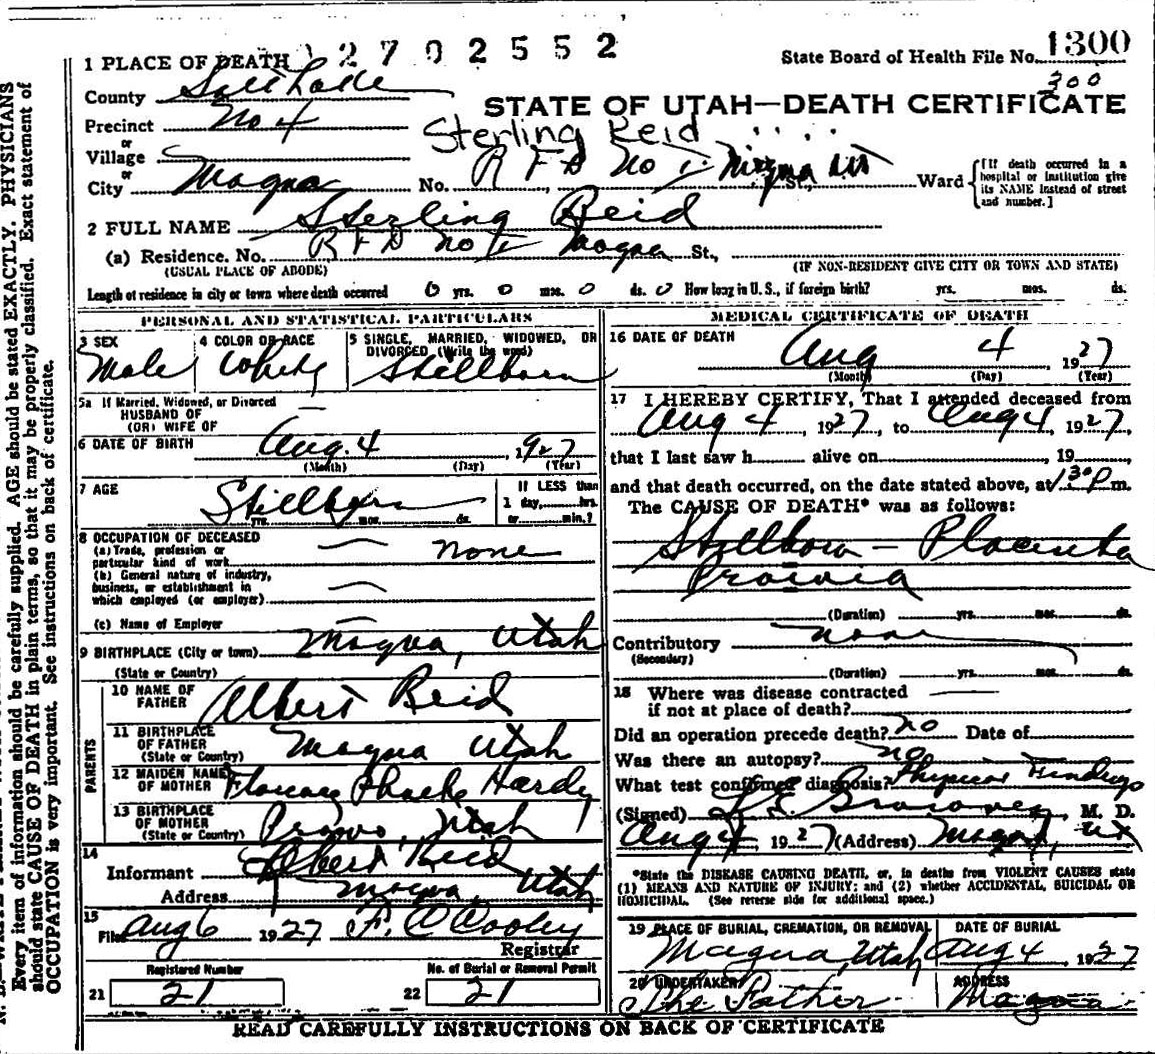 2702552
State Board of Health File No. 1300
300
1 PLACE OF DEATH
County Salt Lake
STATE OF UTAH—DEATH CERTIFICATE
Precinct No 4
Sterling Reid
or
Village
or
City Magna No. R F D No 1 Magna Ut St., Ward
[If death occurred in a hospital or institution give its NAME instead of street and number.]
2 FULL NAME Sterling Reid
(a) Residence. No. R F D No 1 Magna St.,
(USUAL PLACE OF ABODE) (IF NON-RESIDENT GIVE CITY OR TOWN AND STATE)
Length of residence in city or town where death occurred 0 yrs. 0 mos. 0 ds. 0 How long in U. S., if foreign birth? yrs. mos. ds.
PERSONAL AND STATISTICAL PARTICULARS
3 SEX Male
4 COLOR OR RACE White
5 SINGLE, MARRIED, WIDOWED, OR DIVORCED (Write the word) Stillborn
5a If Married, Widowed, or Divorced
HUSBAND OF
(OR) WIFE OF
6 DATE OF BIRTH Aug. 4, 1927
(Month) (Day) (Year)
7 AGE Stillborn
yrs. mos. ds.
If LESS than
1 day, hrs.
or min.?
8 OCCUPATION OF DECEASED
(a) Trade, profession or particular kind of work none
(b) General nature of industry, business, or establishment in which employed (or employer)
(c) Name of Employer
9 BIRTHPLACE (City or town) Magna, Utah
(State or Country)
PARENTS
10 NAME OF FATHER Albert Reid
11 BIRTHPLACE OF FATHER (State or Country) Magna Utah
12 MAIDEN NAME OF MOTHER Florence Phoebe Hardy
13 BIRTHPLACE OF MOTHER (State or Country) Provo, Utah
14
Informant Albert Reid
Address Magna, Utah
15
Filed Aug 6 1927 F. C Cooley
Registrar
Registered Number
21 21
No. of Burial or Removal Permit
22 21
MEDICAL CERTIFICATE OF DEATH
16 DATE OF DEATH Aug 4, 1927
(Month) (Day) (Year)
17 I HEREBY CERTIFY, That I attended deceased from
Aug 4, 1927, to Aug 4, 1927,
that I last saw h alive on , 19
and that death occurred, on the date stated above, at 1 30 P m.
The CAUSE OF DEATH* was as follows:
Stillborn - Placenta
Praevia
(Duration) yrs. mos. ds.
Contributory none
(Secondary)
(Duration) yrs. mos. ds.
18 Where was disease contracted
if not at place of death?
Did an operation precede death? no Date of
Was there an autopsy? no
What test confirmed diagnosis? Physical Findings
(Signed) M. D.
Aug 4, 1927 (Address) Magna, Ut
*State the DISEASE CAUSING DEATH, or, in deaths from VIOLENT CAUSES state
(1) MEANS AND NATURE OF INJURY; and (2) whether ACCIDENTAL, SUICIDAL OR
HOMICIDAL. (See reverse side for additional space.)
19 PLACE OF BURIAL, CREMATION, OR REMOVAL Magna, Utah
DATE OF BURIAL Aug 4, 1927
20 UNDERTAKER The Father
ADDRESS Magna
READ CAREFULLY INSTRUCTIONS ON BACK OF CERTIFICATE
Every item of information should be carefully supplied. AGE should be stated EXACTLY. PHYSICIANS
should state CAUSE OF DEATH in plain terms, so that it may be properly classified. Exact statement of
OCCUPATION is very important. See instructions on back of certificate.